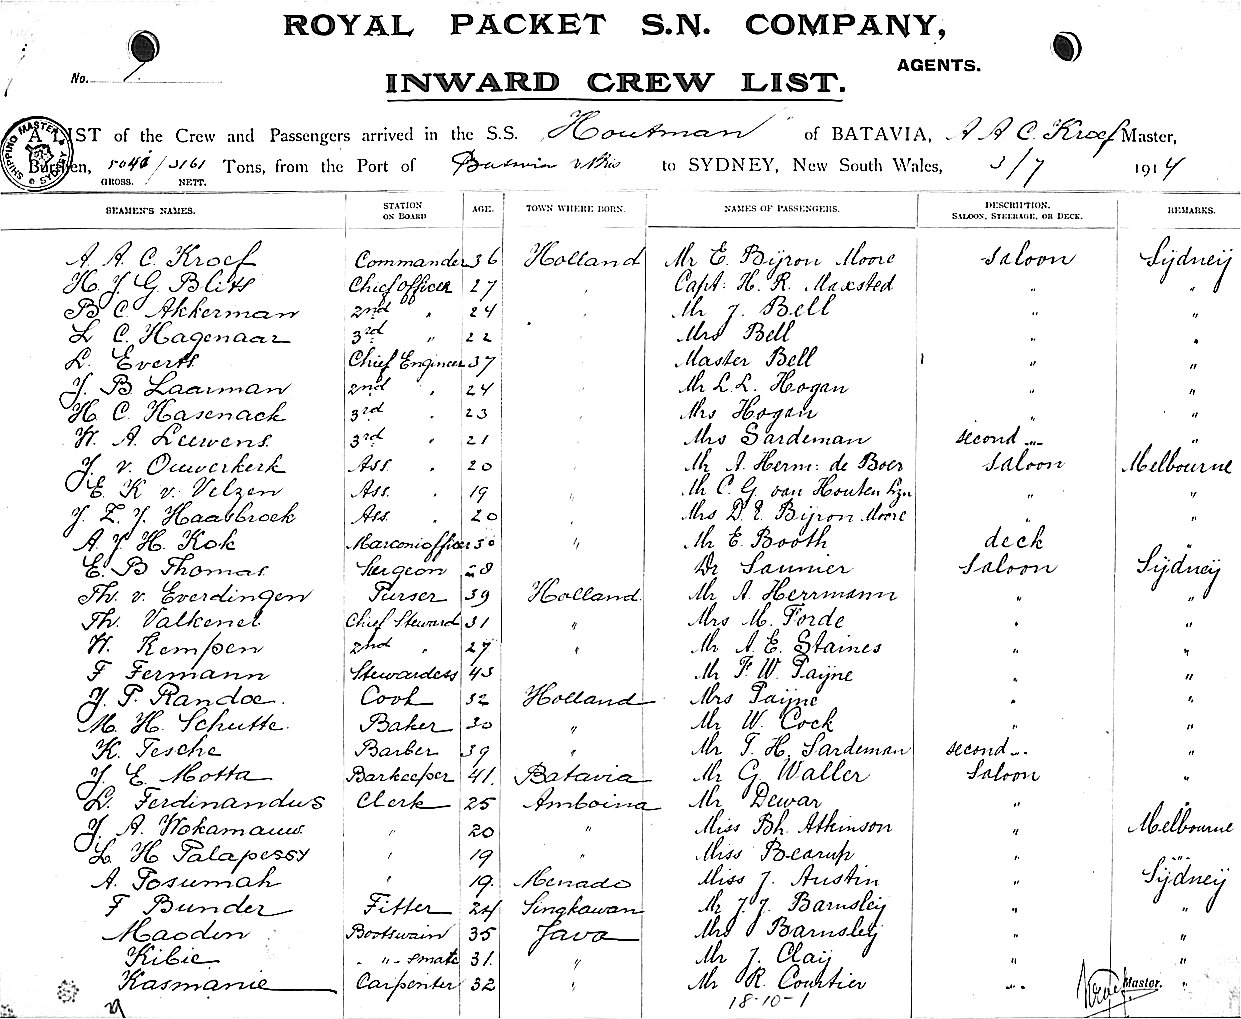 ROYAL PACKET S.N. COMPANY,
AGENTS.
No.
INWARD CREW LIST.
A LIST of the Crew and Passengers arrived in the S.S. "Houtman" of BATAVIA, A A C. Kroef Master,
Burthen, 5048/3161 Tons, from the Port of Batavia to SYDNEY, New South Wales, 3/7 1914
GROSS. NETT.
SEAMEN'S NAMES. STATION ON BOARD AGE. TOWN WHERE BORN. NAMES OF PASSENGERS. DESCRIPTION. SALOON, STEERAGE, OR DECK. REMARKS.
A A C. Kroef Commander 36 Holland Mr E. Byron Moore Saloon Sydney
H. J. G. Blits Chief officer 27 " Capt. H. R. Maxsted " "
B C. Akkerman 2nd " 24 " Mr J. Bell " "
L C. Hagenaar 3rd " 22 " Mrs Bell " "
L. Everts Chief Engineer 37 " Master Bell " "
J. B Laarman 2nd " 24 " Mr L.L. Hogan " "
H C. Hasenack 3rd " 23 " Mrs Hogan " "
W. A. Leewens 3rd " 21 " Mrs Sardeman second " "
J. v. Ouwerkerk Ass. " 20 " Mr A. Herm: de Boer Saloon Melbourne
E. K v. Velzen Ass. 19 " Mr C. G. van Houten Lzn " "
J. Z. J. Haasbroek Ass. " 20 " Mrs D. E. Byron Moore " "
A. J. H. Kok Marconi officer 30 " Mr E. Booth deck "
E. B Thomas Surgeon 28 Dr Saunier Saloon Sydney
Th. v. Everdingen Purser 39 Holland Mr A. Herrmann " "
Th. Valkenet Chief Steward 31 " Mrs M. Forde " "
W. Kempen 2nd " 27 " Mr A. E. Staines " "
F Fermann Stewardess 43 Mr F. W. Payne " "
J. P. Randoe. Cook 32 Holland Mrs Payne " "
M. H. Schutte. Baker 30 " Mr W. Cock " "
K. Tesche Barber 39 " Mr T. H. Sardeman second " "
J. E. Motta Barkeeper 41. Batavia Mr G. Waller Saloon "
L. Ferdinandus Clerk 25 Amboina Mr Dewar " "
J. A. Wokamauw " 20 " Miss Bh. Atkinson " Melbourne
L H Palapessy " 19 " Miss Bearup " "
A. Tosumah " 19. Menado Miss J. Austin " Sydney
F Bunder Fitter 24 Singkawan Mr J. J. Barnsley " "
Maodin Bootswain 35 Java Mrs Barnsley " "
Kibie " " smate 31. " Mr J. Clay " "
Kasmanie Carpenter 32 " Mr R. Courtier " Master. "
18-10-1